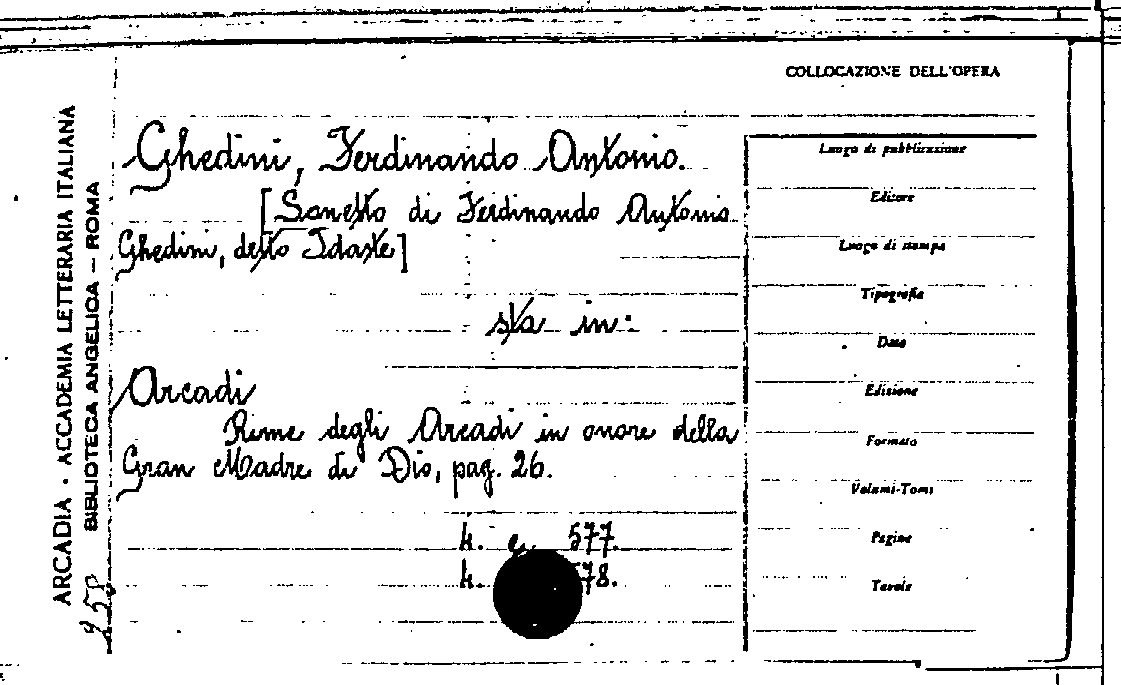 COLLOCAZIONE DELL'OPERA
ARCADIA - ACCADEMIA LETTERARIA ITALIANA
BIBLIOTECA ANGELICA — ROMA
Ghedini, Ferdinando Antonio.
[Sonetto di Ferdinando Antonio
Ghedini, detto Idaste]
sta in:
Arcadi
Rime degli Arcadi in onore della
Gran Madre di Dio, pag. 26.
h. e 577.
h. 578.
Luogo di pubblicazione
Editore
Luogo di stampa
Tipografia
Data
Edizione
Formato
Volumi-Tomi
Pagine
Tavole